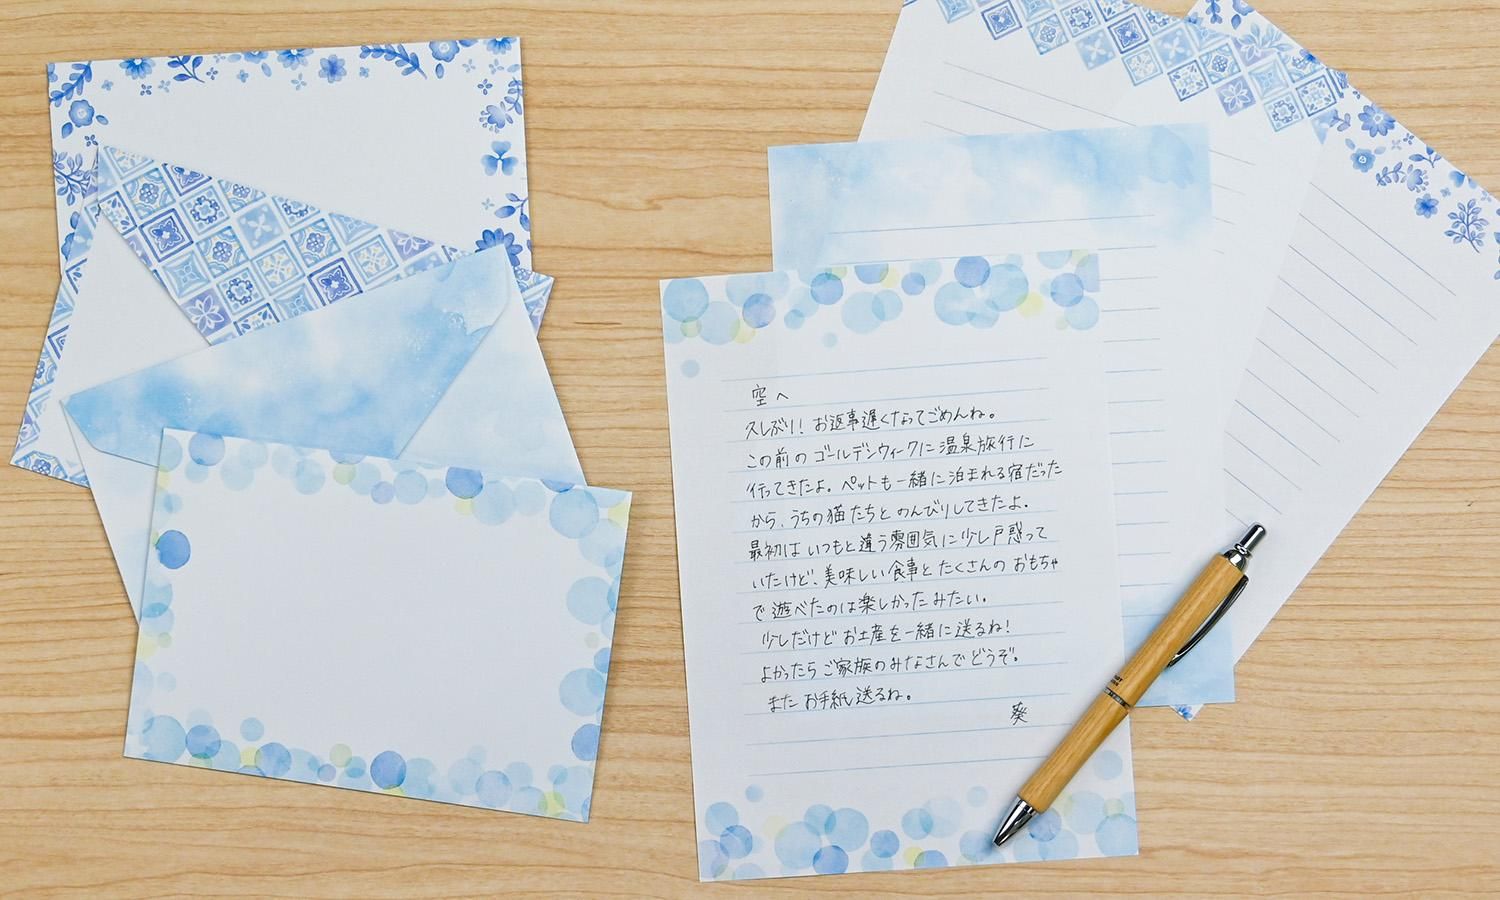 空へ
久しぶり！お返事遅くなってごめんね。
この前のゴールデンウィークに温泉旅行に
行ってきたよ。ペットも一緒に泊まれる宿だった
から、うちの猫たちとのんびりしてきたよ。
最初はいつもと違う雰囲気に少し戸惑って
いたけど、美味しい食事とたくさんのおもちゃ
で遊べたのは楽しかったみたい。
少しだけどお土産を一緒に送るね！
よかったらご家族のみなさんでどうぞ。
またお手紙送るね。
葵